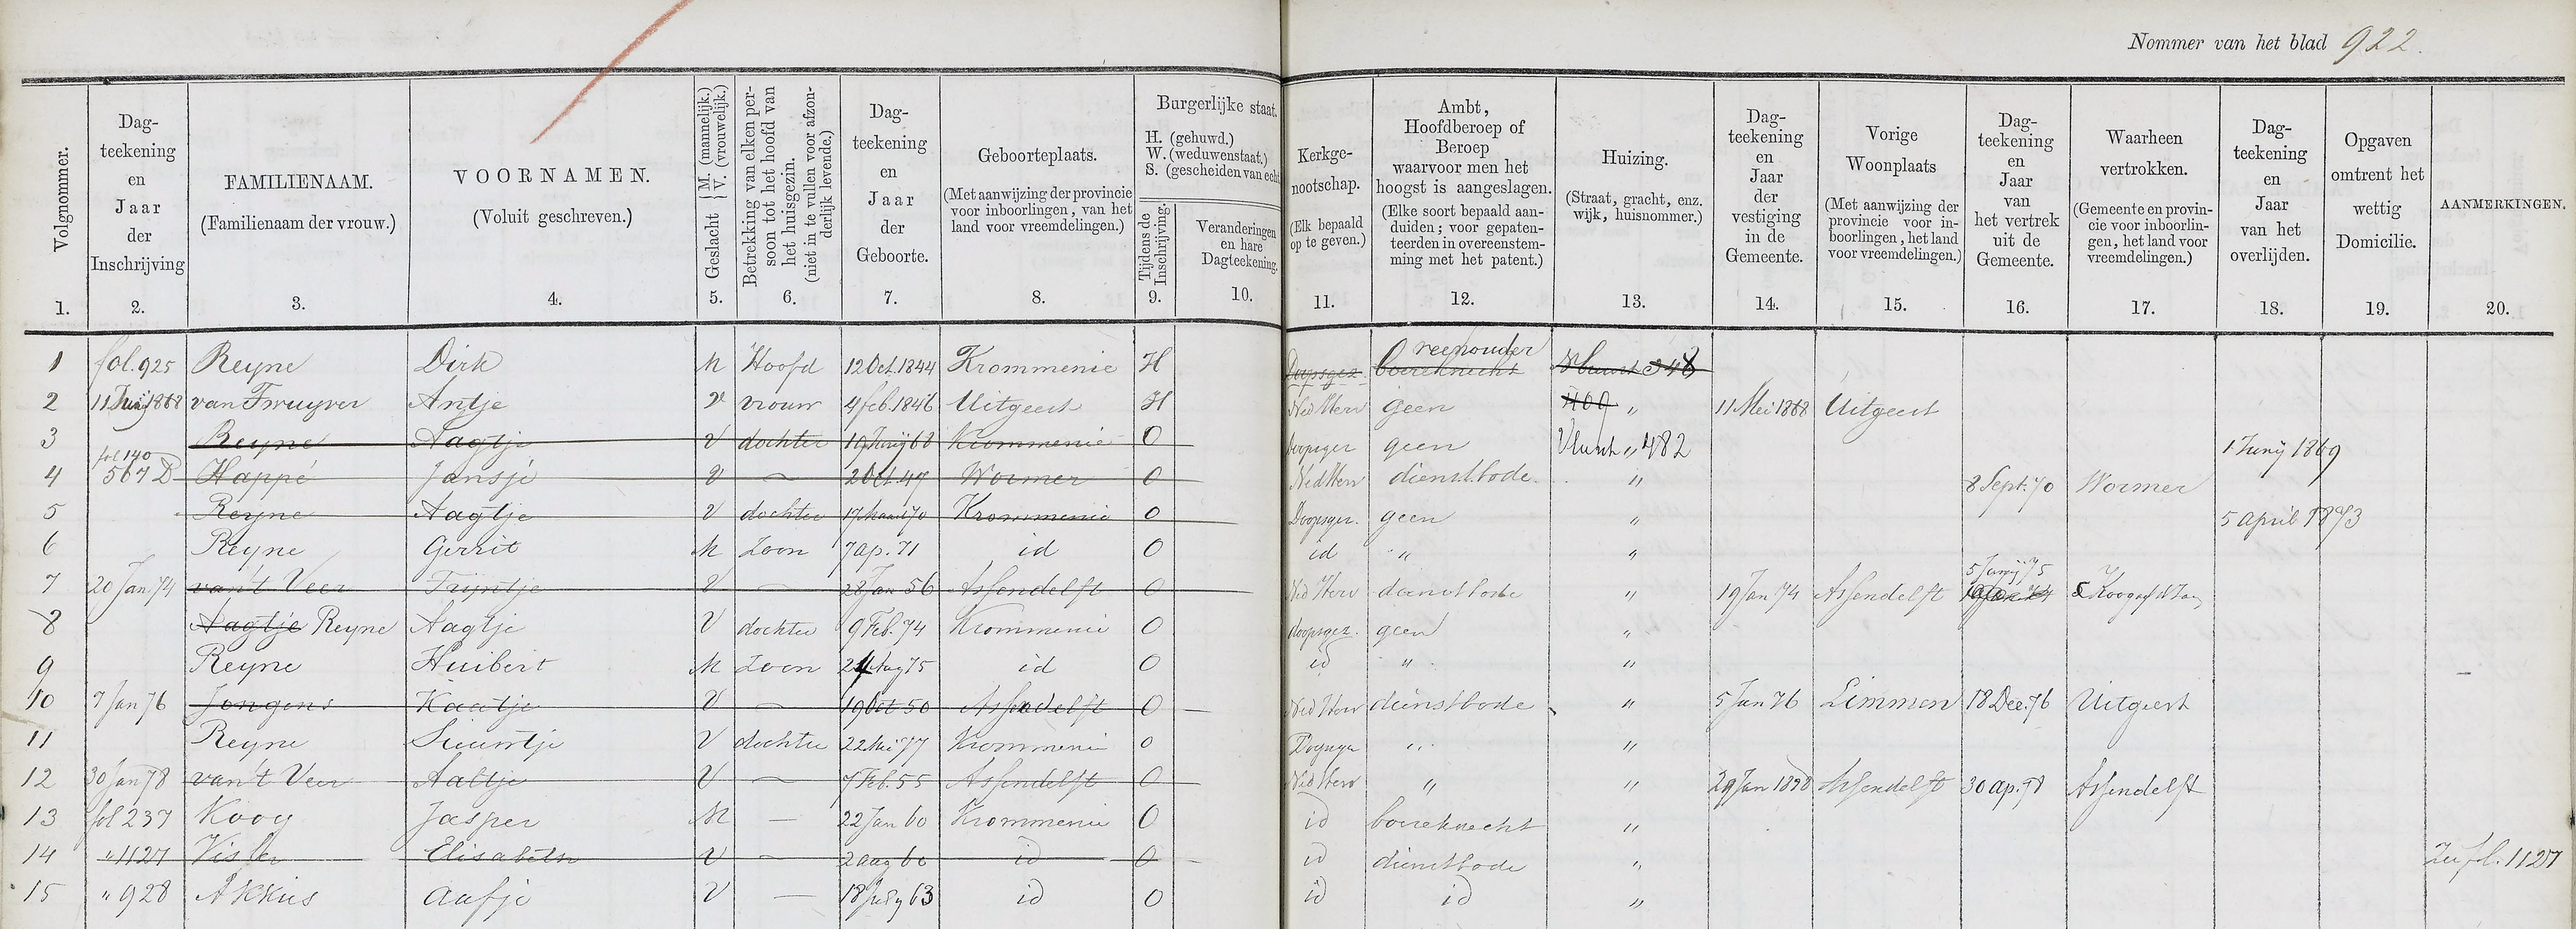 Nommer van het blad 922.
Volgnommer.
1.
Dag-
teekening
en
Jaar
der
Inschrijving
2.
FAMILIENAAM.
(Familienaam der vrouw.)
3.
VOORNAMEN.
(Voluit geschreven.)
4.
Geslacht { M. (mannelijk.)
V. (vrouwelijk.)
5.
Betrekking van elken per-
soon tot het hoofd van
het huisgezin.
(niet in te vullen voor afzon-
derlijk levende.)
6.
Dag-
teekening
en
Jaar
der
Geboorte.
7.
Geboorteplaats.
(Met aanwijzing der provincie
voor inboorlingen, van het
land voor vreemdelingen.)
8.
Burgerlijke staat.
H. (gehuwd.)
W. (weduwenstaat.)
S. (gescheiden van echt
Tijdens de
Inschrijving.
9.
Veranderingen
en hare
Dagteekening.
10.
Kerkge-
nootschap.
(Elk bepaald
op te geven.)
11.
Ambt,
Hoofdberoep of
Beroep
waarvoor men het
hoogst is aangeslagen.
(Elke soort bepaald aan-
duiden; voor gepaten-
teerden in overeenstem-
ming met het patent.)
12.
Huizing.
(Straat, gracht, enz.
wijk, huisnommer.)
13.
Dag-
teekening
en
Jaar
der
vestiging
in de
Gemeente.
14.
Vorige
Woonplaats
(Met aanwijzing der
provincie voor in-
boorlingen, het land
voor vreemdelingen.)
15.
Dag-
teekening
en
Jaar
van
het vertrek
uit de
Gemeente.
16.
Waarheen
vertrokken.
(Gemeente en provin-
cie voor inboorlin-
gen, het land voor
vreemdelingen.)
17.
Dag-
teekening
en
Jaar
van het
overlijden.
18.
Opgaven
omtrent het
wettig
Domicilie.
19.
AANMERKINGEN.
20.
1 fol. 925 Reyne Dirk M Hoofd 12 Oct. 1844 Krommenie H Doopsgez. veehouder boereknecht 348
2 11 Junij 1868 van Twuyver Antje V vrouw 4 feb. 1846 Uitgeest H Ned Herv geen 409 " 11 Mei 1868 Uitgeest
3 Reyne Aagtje V dochter 19 Junij 68 Krommenie O Doopsgez geen " 482 1 Junij 1869
4 fol 140 567 D Happé Jansje V — 2 Oct. 49 Wormer O Ned Herv dienstbode " 8 Sept. 70 Wormer
5 Reyne Aagtje V dochter 17 Maart 70 Krommenie O Doopsgez. geen " 5 april 1873
6 Reyne Gerrit M Zoon 7 ap. 71 id O id " "
7 20 Jan. 74 van 't Veer Trijntje V — 28 Jan 56 Assendelft O Ned Herv dienstbode " 19 Jan 74 Assendelft 5 Junij 75 Koog a/d Zaan
8 Aagtje Reyne Aagtje V dochter 9 Feb. 74 Krommenie O doopsgez. geen "
9 Reyne Huibert M Zoon 24 Aug 75 id O id " "
10 7 Jan 76 Jongens Kaatje V — 19 Oct 50 Assendelft O Ned Herv dienstbode " 5 Jan 76 Limmen 18 Dec. 76 Uitgeest
11 Reyne Sieuwtje V dochter 22 Mei 77 Krommenie O Doopsgez " "
12 30 Jan 78 van 't Veer Aaltje V — 7 Feb. 55 Assendelft O Ned Herv " " 29 Jan 1878 Assendelft 30 ap. 78 Assendelft
13 fol 237 Koog Jasper M — 22 Jan 60 Krommenie O id boereknecht "
14 " 1127 Visser Elisabeth V — 2 aug 60 id O id dienstbode " Zie fol. 1127
15 " 928 Akkies Aafje V — 18 July 63 id O id id "